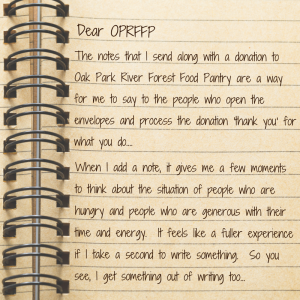 Dear OPRFFP
The notes that I send along with a donation to
Oak Park River Forest Food Pantry are a way
for me to say to the people who open the
envelopes and process the donation 'thank you' for
what you do...
When I add a note, it gives me a few moments
to think about the situation of people who are
hungry and people who are generous with their
time and energy. It feels like a fuller experience
if I take a second to write something. So you
see, I get something out of writing too...